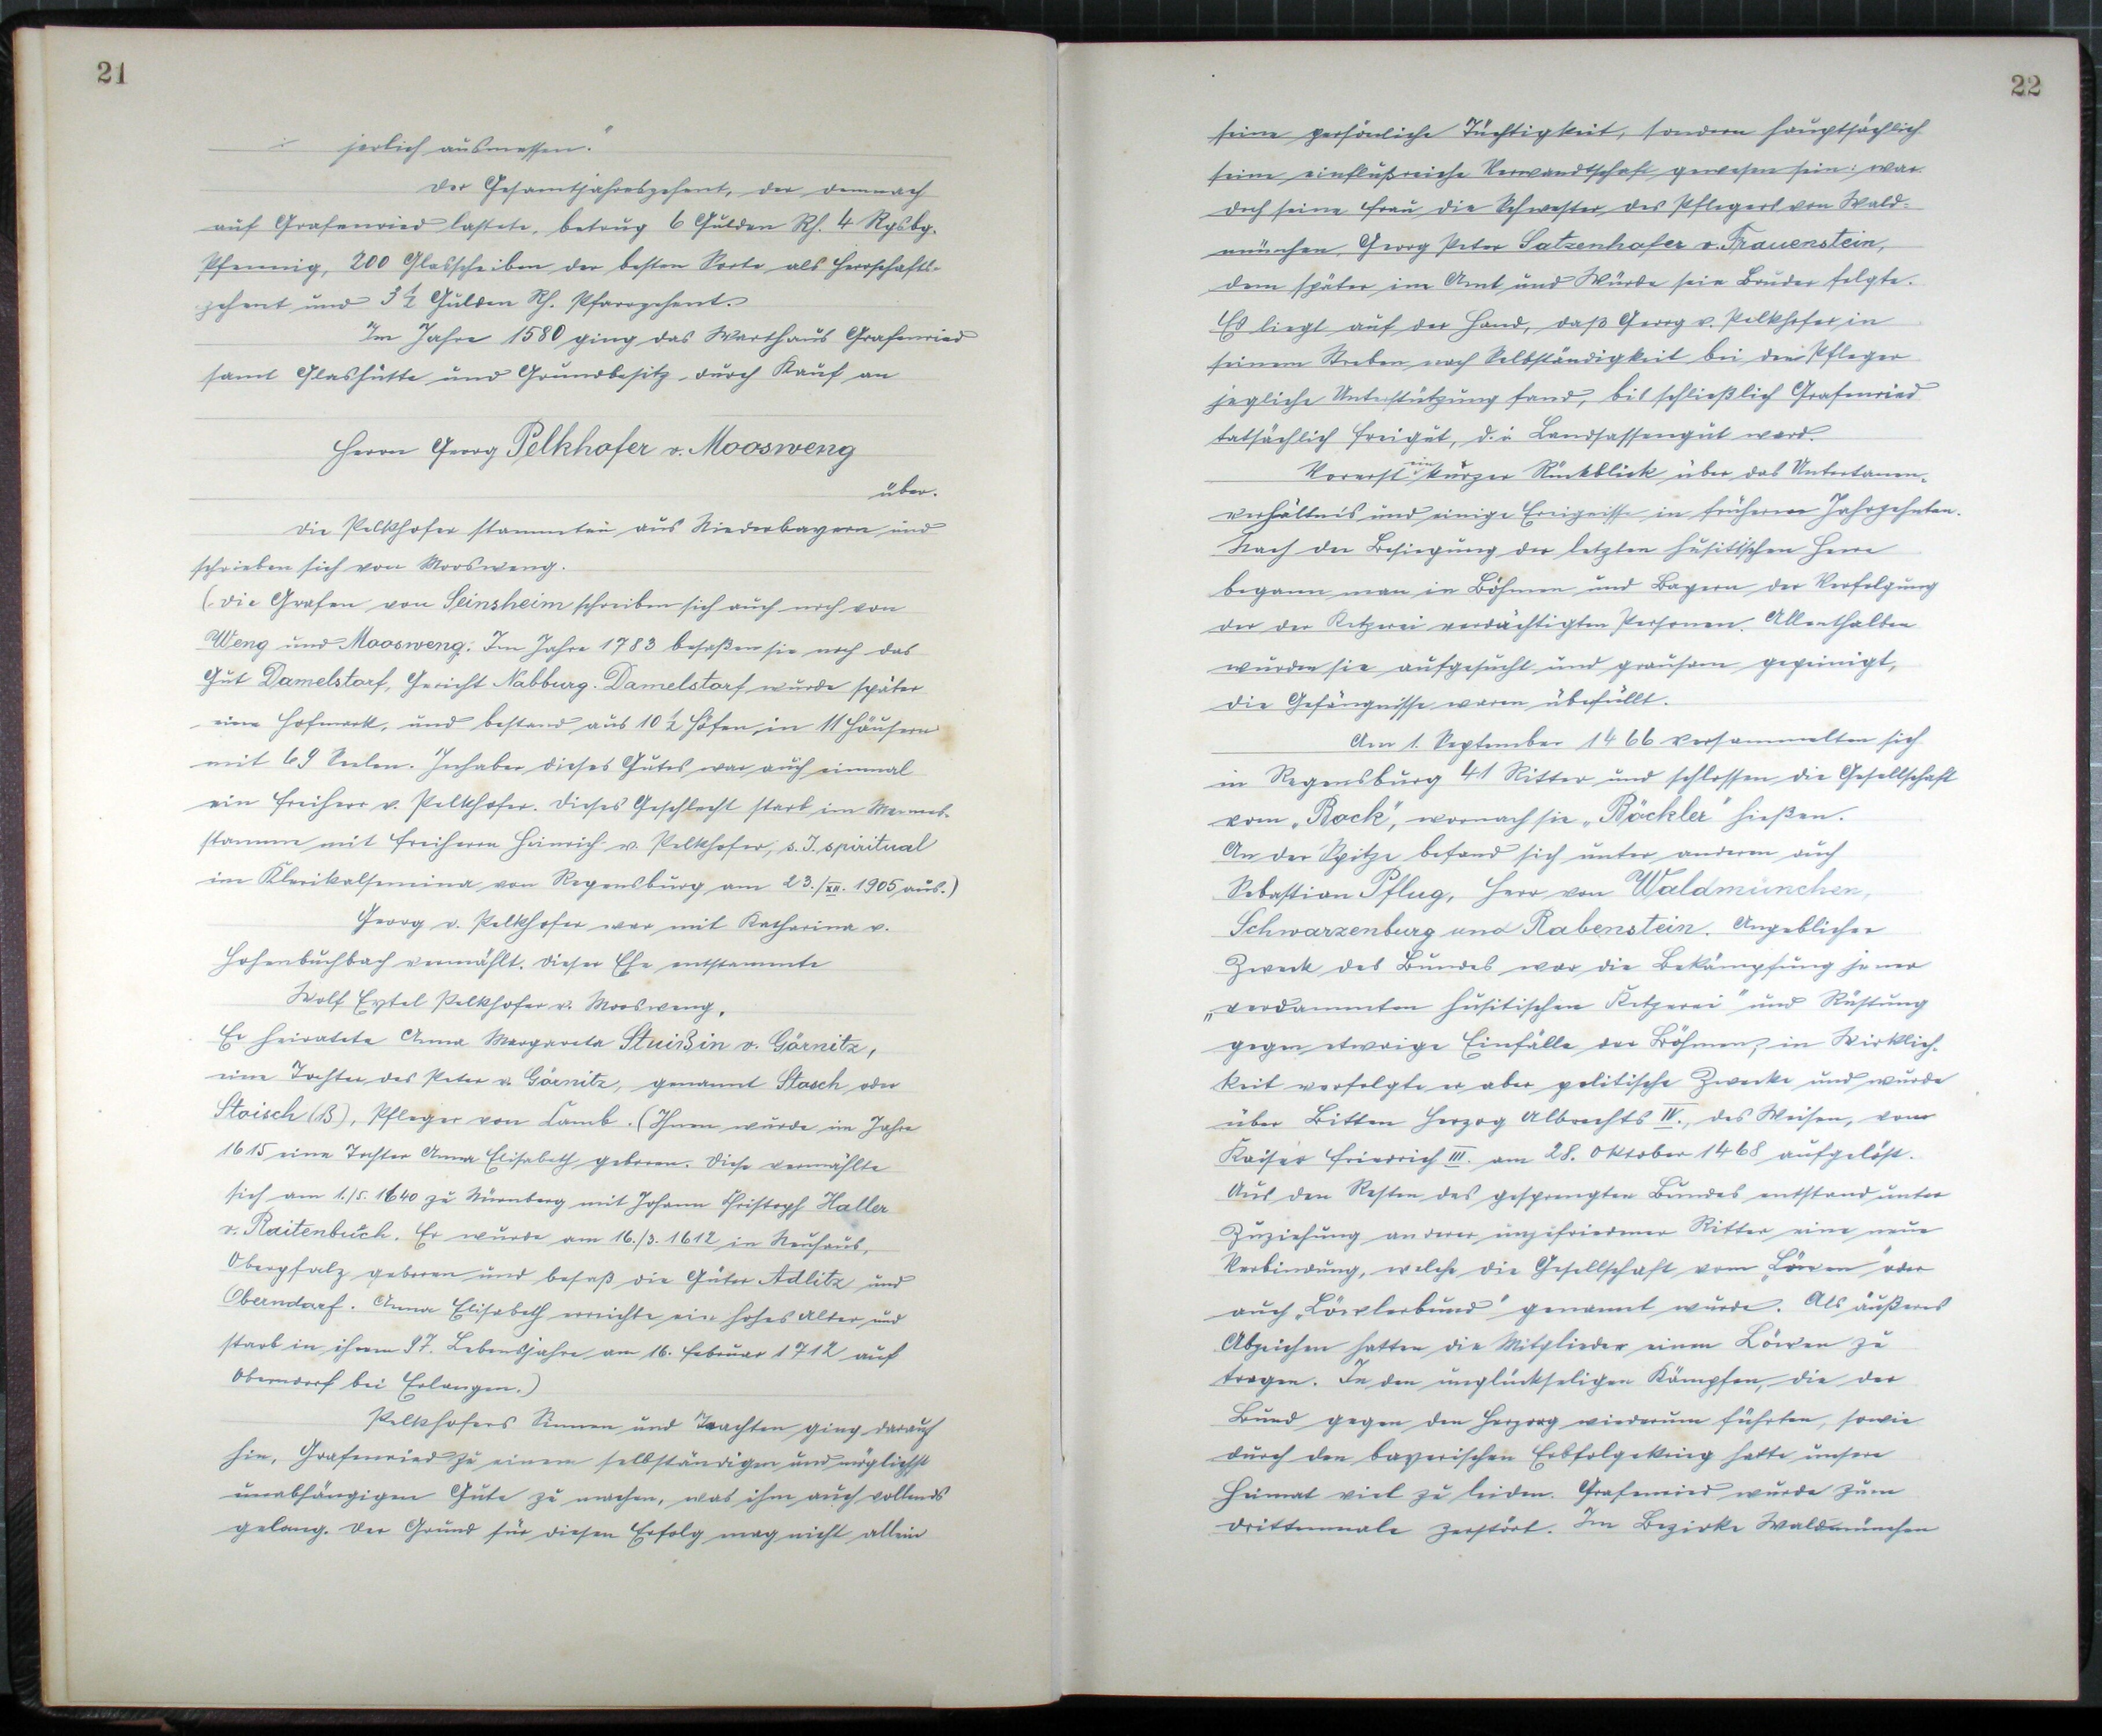 21
jerlich ausmessen."
Der Gesamtjahreszehent, der demnach
auf Grafenried lastete, betrug 6 Gulden Rh. 4 Rgsbg.
Pfennig, 200 Glasscheiben der besten Sorte als Herrschafts-
zehent und 3 1/2 Gulden Rh. Pfarrzehent.
Im Jahre 1580 ging das Warthaus Grafenried
samt Glashütte und Grundbesitz durch Kauf an
Herrn Georg Pelkhofer v. Moosweng
über.
Die Pelkhofer stammten aus Niederbayern und
schrieben sich von Moosweng.
(Die Grafen von Seinsheim schreiben sich auch noch von
Weng und Moosweng. Im Jahre 1783 besaßen sie noch das
Gut Damelstorf, Gericht Nabburg. Damelstorf wurde später
eine Hofmark, und bestand aus 10 1/2 Höfen, in 11 Häusern
mit 69 Seelen. Inhaber dieses Gutes war auch einmal
ein Freiherr v. Pelkhofer. Dieses Geschlecht starb im Mannes-
stamme mit Freiherrn Heinrich v. Pelkhofer, s. J. spiritual
im Klerikalseminar von Regensburg am 23./XII. 1905 aus.)
Georg v. Pelkhofer war mit Katharina v.
Hohenbuchbach vermählt. Dieser Ehe entstammte
Wolf Eytel Pelkhofer v. Moosweng.
Er heiratete Anna Margareta Stuißin v. Görnitz,
eine Tochter des Peter v. Görnitz, genannt Stosch oder
Stoisch (ß), Pfleger von Camb. (Ihnen wurde im Jahre
1615 eine Tochter Anna Elisabeth geboren. Diese vermählte
sich am 1./5. 1640 zu Nürnberg mit Johann Christoph Haller
v. Raitenbuch. Er wurde am 16./3. 1612 in Neuhaus,
Oberpfalz geboren und besaß die Güter Adlitz und
Oberndorf. Anna Elisabeth erreichte ein hohes Alter und
starb in ihrem 97. Lebensjahre am 16. Februar 1712 auf
Oberndorf bei Erlangen.)
Pelkhofers Sinnen und Trachten ging darauf
hin, Grafenried zu einem selbständigen und möglichst
unabhängigen Gute zu machen, was ihm auch vollends
gelang. Der Grund für diesen Erfolg mag nicht allein
22
seine persönliche Tüchtigkeit, sondern hauptsächlich
seine einflußreiche Verwandtschaft gewesen sein: war
doch seine Frau die Schwester des Pflegers von Wald-
münchen, Georg Peter Satzenhofer v. Frauenstein,
dem später im Amt und Würde sein Bruder folgte.
Es liegt auf der Hand, daß Georg v. Pelkhofer in
seinem Streben nach Selbständigkeit bei dem Pfleger
jegliche Unterstützung fand, bis schließlich Grafenried
tatsächlich Freigut, d. i. Landsassengut ward.
Vorerst ein kurzer Rückblick über das Untertanen-
verhältnis und einige Ereignisse in früheren Jahrzehnten.
Nach der Besiegung der letzten husitischen Heere
begann man in Böhmen und Bayern der Verfolgung
der der Ketzerei verdächtigten Personen. Allenthalben
wurden sie aufgesucht und grausam gepeinigt,
die Gefängnisse waren überfüllt.
Am 1. September 1466 versammelten sich
in Regensburg 41 Ritter und schlossen die Gesellschaft
vom „Bock", wornach sie „Böckler" hießen.
An der Spitze befand sich unter anderen auch
Sebastian Pflug, Herr von Waldmünchen,
Schwarzenburg und Rabenstein. Angeblicher
Zweck des Bundes war die Bekämpfung jener
„verdammten husitischen Ketzerei" und Rüstung
gegen etwaige Einfälle der Böhmen, in Wirklich-
keit verfolgte er aber politische Zwecke und wurde
über Bitten Herzog Albrechts IV., des Weisen, vom
Kaiser Friedrich III. am 28. Oktober 1468 aufgelöst.
Aus den Resten des gesprengten Bundes entstand unter
Zuziehung anderer unzufriedener Ritter eine neue
Verbindung, welche die Gesellschaft vom „Löwen" oder
auch „Löwlerbund" genannt wurde. Als äußeres
Abzeichen hatten die Mitglieder einen Löwen zu
tragen. In den unglückseligen Kämpfen, die der
Bund gegen den Herzog wiederum führten, sowie
durch den bayerischen Erbfolgekrieg hatte unsere
Heimat viel zu leiden. Grafenried wurde zum
drittenmale zerstört. Im Bezirke Waldmünchen